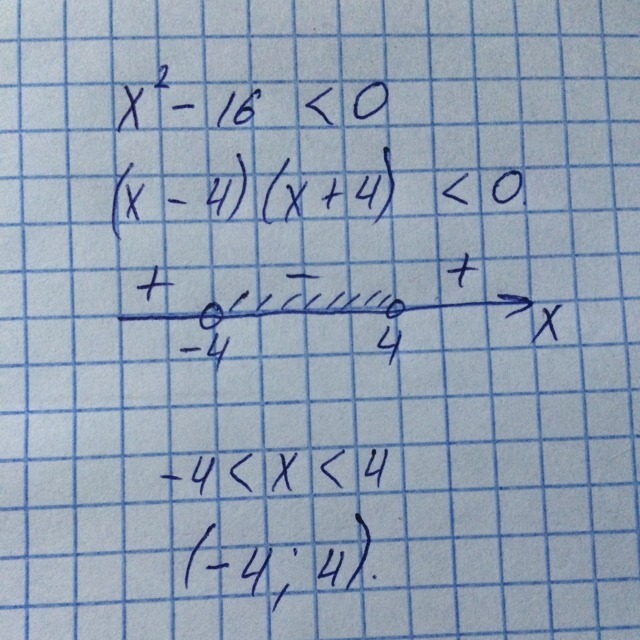 x² - 16 < 0
(x - 4)(x + 4) < 0
+ - +
-4 4 x
-4 < x < 4
(-4; 4).